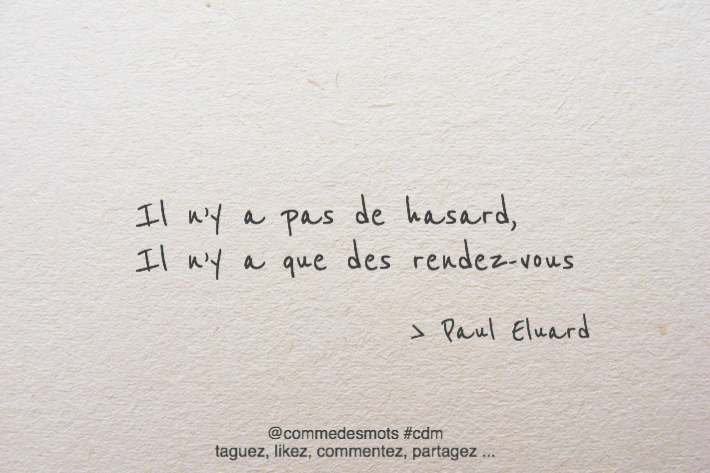 Il n'y a pas de hasard,
Il n'y a que des rendez-vous
> Paul Eluard
@commedesmots #cdm
taguez, likez, commentez, partagez ...